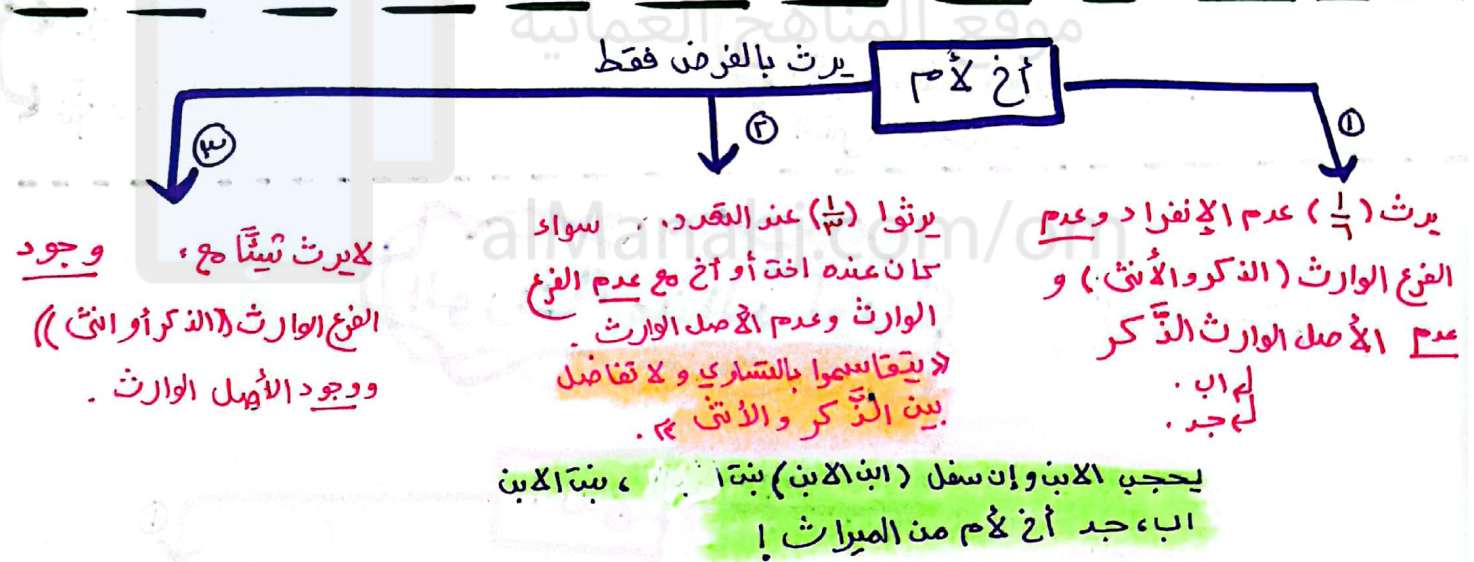 موقع المناهج العمانية
أخ لأم
يرث بالفرض فقط
①
②
③
يرث (١/٦) عدم الإنفراد وعدم
الفرع الوارث (الذكر والأنثى) و
عدم الأصل الوارث الذَّكر
اب .
جد .
يرثوا (١/٣) عند التعدد، سواء
كان عنده اخت أو أخ مع عدم الفرع
الوارث وعدم الأصل الوارث .
«يتقاسموا بالتساوي ولا تفاضل
بين الذَّكر والأنثى» .
لايرث شيئًا مع: وجود
الفرع الوارث ((الذكر أو انثى))
ووجود الأصل الوارث .
alManahj.com/om
يحجب الابن وإن سفل (ابن الابن) بنت ا ، بنت الابن
اب، جد أخ لأم من الميراث !